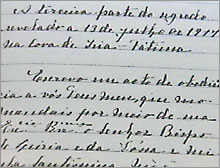 A terceira parte do segredo
revelado a 13 de julho de 1917
na Cova da Iria - Fátima
Escrevo um acto de obediên
cia a vós Deus meu, que mo
mandais por meio de sua
Ex.cia Rev.ma o Senhor Bispo
de Leiria e da Vossa e mi
nha Santíssima Mãe